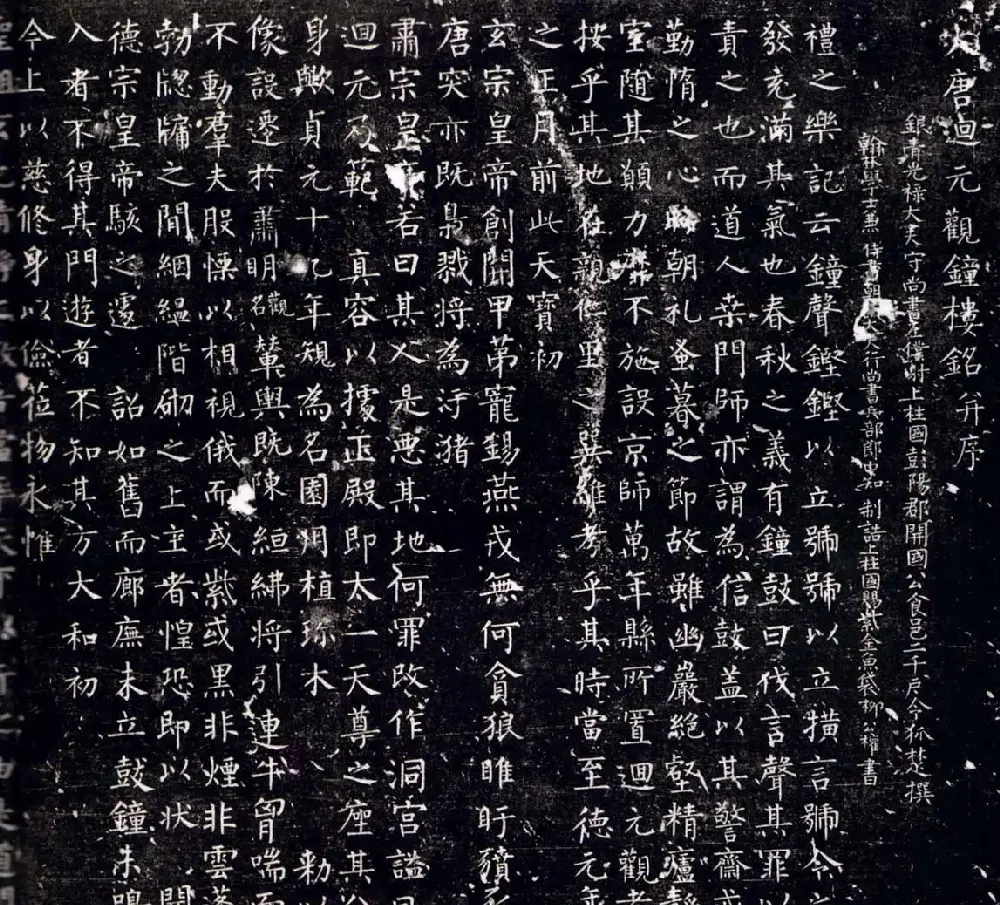 大唐迴元觀鐘樓銘并序
銀青光祿大夫守尚書左僕射上柱國彭陽郡開國公食邑二千戶令狐楚撰
翰林學士兼侍書朝議大夫行尚書兵部郎中知制誥上柱國賜紫金魚袋柳公權書
禮之樂記云鐘聲鏗鏗以立號號以立橫言號令之
發充滿其氣也春秋之義有鐘鼓曰伐言聲其罪以
責之也而道人桒門師亦謂為信鼓蓋以其警齋戒
勤惰之心時朝礼蚤暮之節故雖幽巖絕壑精廬靜
室隨其願力靡不施設京師萬年縣所置迴元觀者
按乎其地在親仁里之巽維考乎其時當至德元年
之正月前此天寶初
玄宗皇帝創開甲第寵錫燕戎無何貪狼睢盱豶豕
唐突亦既梟戮將為汙猪
肅宗皇帝若曰其人是惡其地何罪改作洞宮謚曰
迴元乃範真容以據正殿即太一天尊之座其分
身歟貞元十九年規為名園用植珎木勅以
像設遷於肅明觀名輦輿既陳絙紼將引連牛胷喘而
不動羣夫股慄以相視俄而或紫或黑非煙非雲蓬
勃牎牖之間絪緼階砌之上主者惶恐即以狀聞
德宗皇帝駭之遽詔如舊而廊廡未立鼓鐘未鳴
入者不得其門遊者不知其方大和初
今上以慈修身以儉莅物永惟